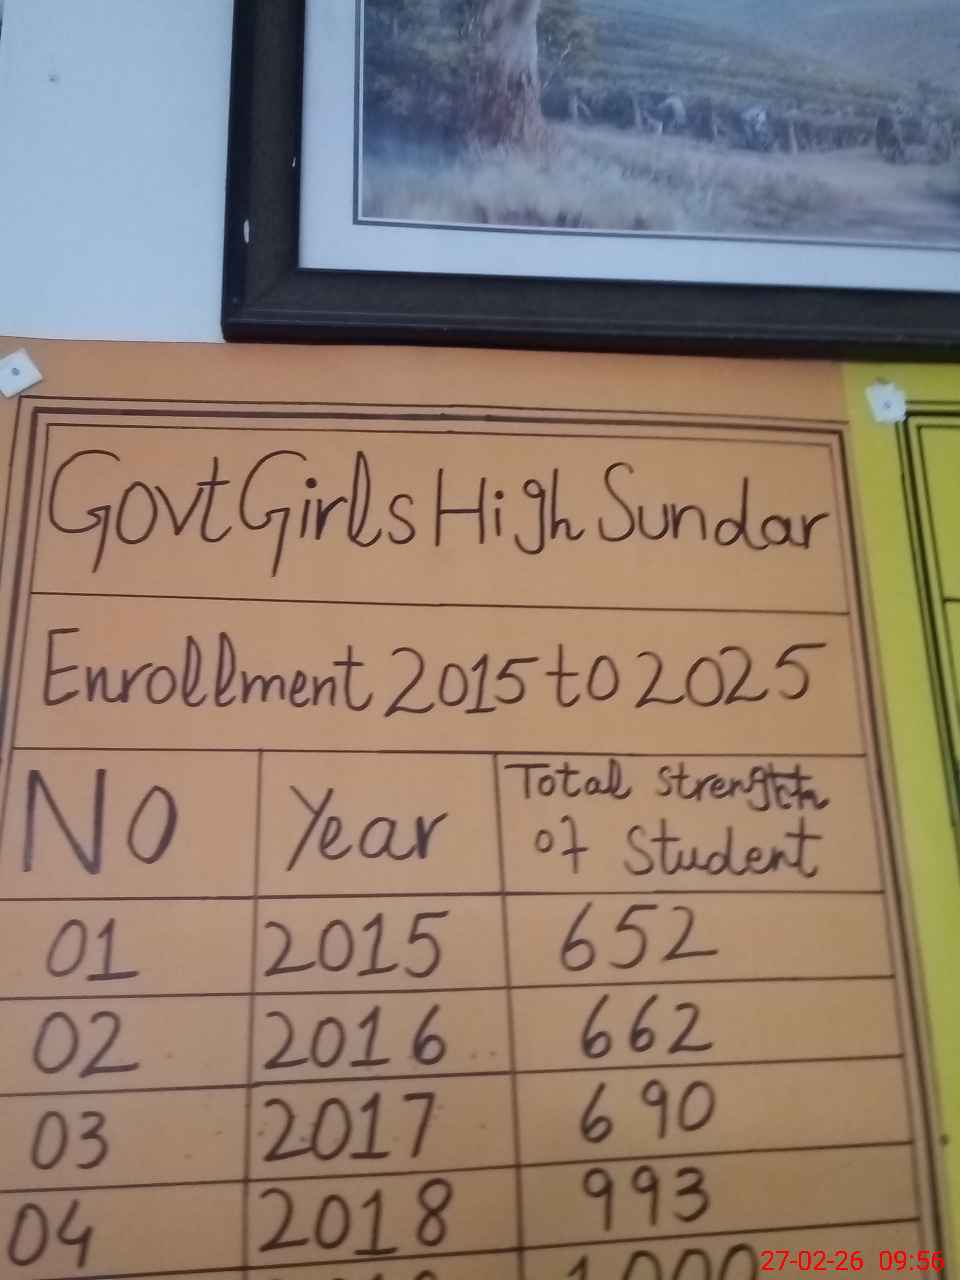 Govt Girls High Sundar
Enrollment 2015 to 2025
No Year Total Strength of Student
01 2015 652
02 2016 662
03 2017 690
04 2018 993
27-02-26 09:56